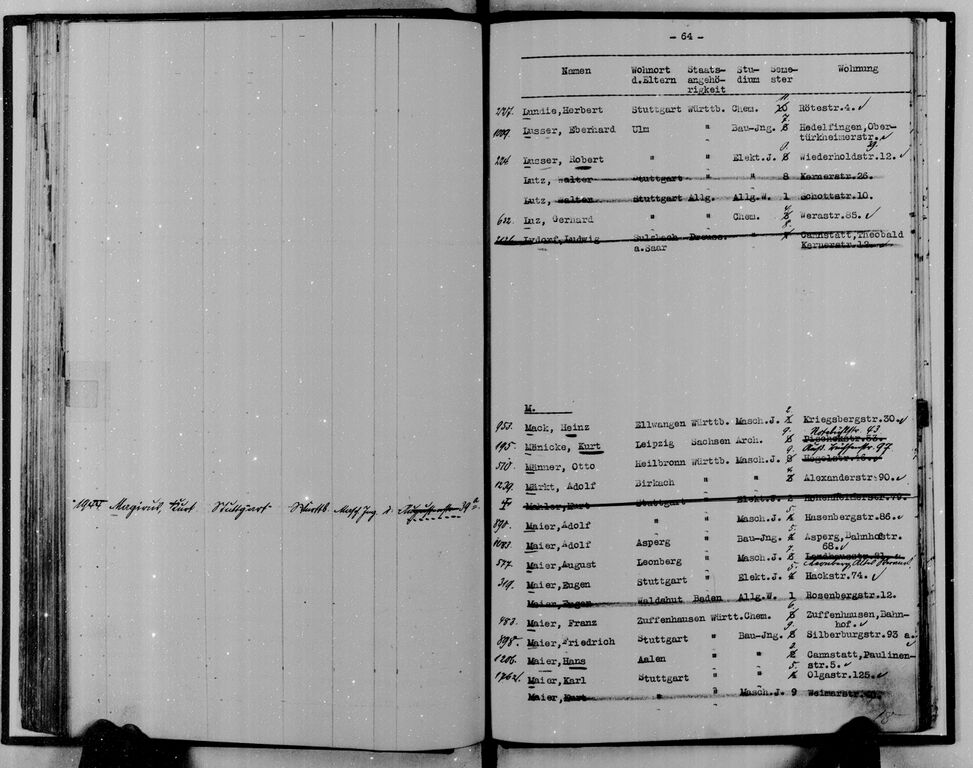 Magirus, Kurt Stuttgart Württb. Masch Jng
- 64 -
Namen Wohnort d.Eltern Staats-angehö-rigkeit Stu-dium Seme-ster Wohnung
Lundie, Herbert Stuttgart Württb. Chem. 10 11 Rötestr.4.
1009. Lusser, Eberhard Ulm " Bau-Jng. 7. Hedelfingen,Ober-
türkheimerstr. 39.
226 Lusser, Robert " " Elekt.J. 8 Wiederholdstr.12.
Lutz, Walter Stuttgart " " 8 Kernerstr.26.
Lutz, Walter Stuttgart Allg. Allg.W. 1 Schottstr.10.
622. Luz, Gerhard " " Chem. Werastr.85.
Lydorf, Ludwig Sulzbach Preuss. " 8. Cannstatt,Theobald
a.Saar Kernerstr.12.
M.
953. Mack, Heinz Ellwangen Württb. Masch.J. 2. Kriegsbergstr.30.
Rotebühlstr. 43
195. Mönicke, Kurt Leipzig Sachsen Arch. 9. Bischofstr.53.
97
510. Männer, Otto Heilbronn Württb. Masch.J. 9. Hegelstr.
1229. Märkt, Adolf Birkach " " Alexanderstr.90.
Mahler, Kurt Stuttgart " Elekt.J. 2
890. Maier,Adolf " " Masch.J. 5. Hasenbergstr.86.
1083. Maier,Adolf Asperg " Bau-Jng. 5. Asperg,Bahnhofstr.
68.
577. Maier,August Leonberg " Masch.J. 7. Landhausstr.
319. Maier,Eugen Stuttgart " Elekt.J. 5. Hackstr.74.
Maier,Eugen Waldshut Baden Allg.W. 1 Rosenbergstr.12.
483. Maier, Franz Zuffenhausen Württ.Chem. 6. Zuffenhausen,Bahn-
hof.
898. Maier,Friedrich Stuttgart " Bau-Jng. 9. Silberburgstr.93 a.
1206. Maier,Hans Aalen " " 2 Cannstatt,Paulinen-
str.5.
Maier,Karl Stuttgart " " 5. Olgastr.125.
Maier,Kurt " " Masch.J. 9 Weimarstr.